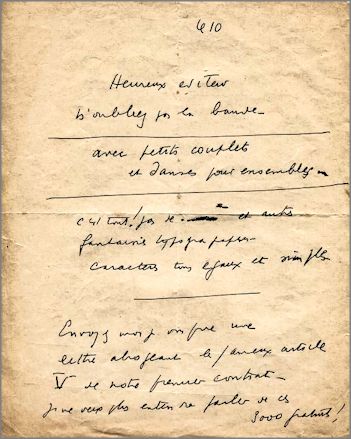 410
Heureux editeur
N'oubliez pas la bande
avec petits couplets
et danses pour ensembles
c'est tout! pas de et autres
fantaisie typographiques
caracteres tous egaux et simples
Envoyez moi une
lettre abrogeant le fameux article
V de notre premier contrat
je ne veux plus entendre parler de ces
3000 gratuits!